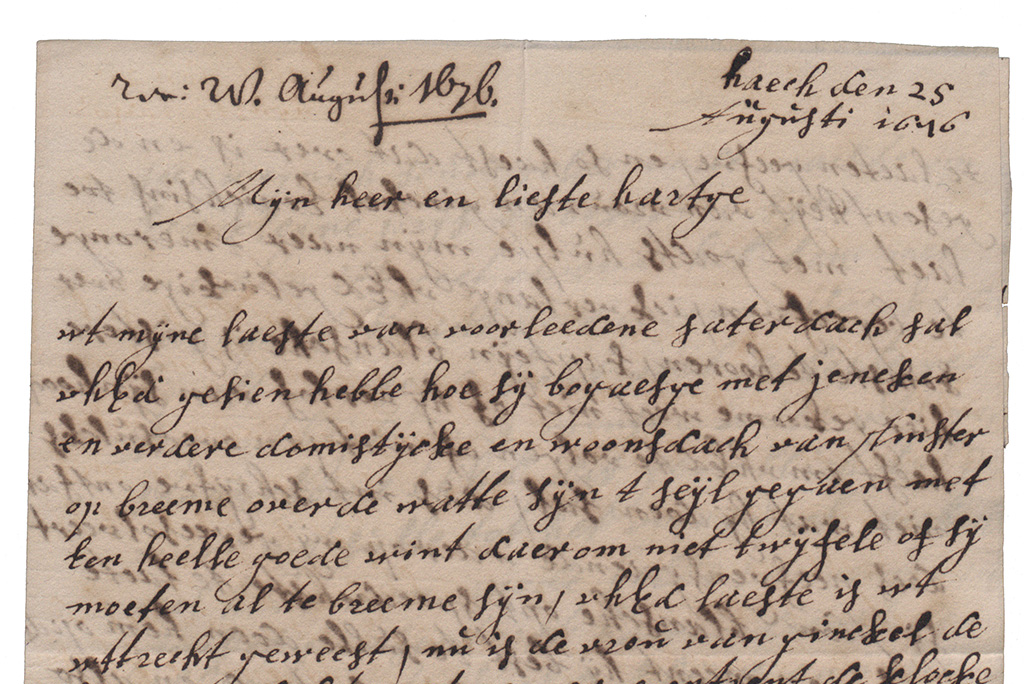 W. Augusti 1676.
haech den 25
Augusti 1676
Mijn heer en liefste hartge
wt mijne laeste van voorleedene saterdach sal
vhEd gesien hebbe hoe sij boguesge met jeneken
en verdere domistijcke en woonsdach van
op breeme over de watte sijn t seijl gegaen met
een heelle goede wint daer om niet twijfele of sij
moeten al te breeme sijn, vhEd laeste is wt
wttrecht geweest, nu is de vrou van ginckel de
de klocke